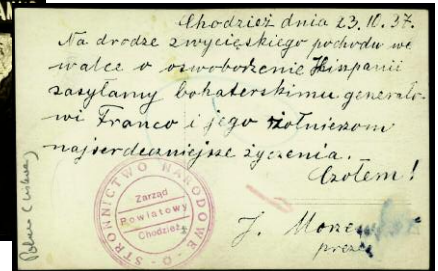 Chodzież dnia 23.10.37.
Na drodze zwycięskiego pochodu we
walce o oswobodzenie Hiszpanii
zasyłamy bohaterskimu generało-
wi Franco i jego żołnierzom
najserdeczniejsze życzenia.
Czołem!
STRONNICTWO NARODOWE
Zarząd
Powiatowy
Chodzież
J.
prezes